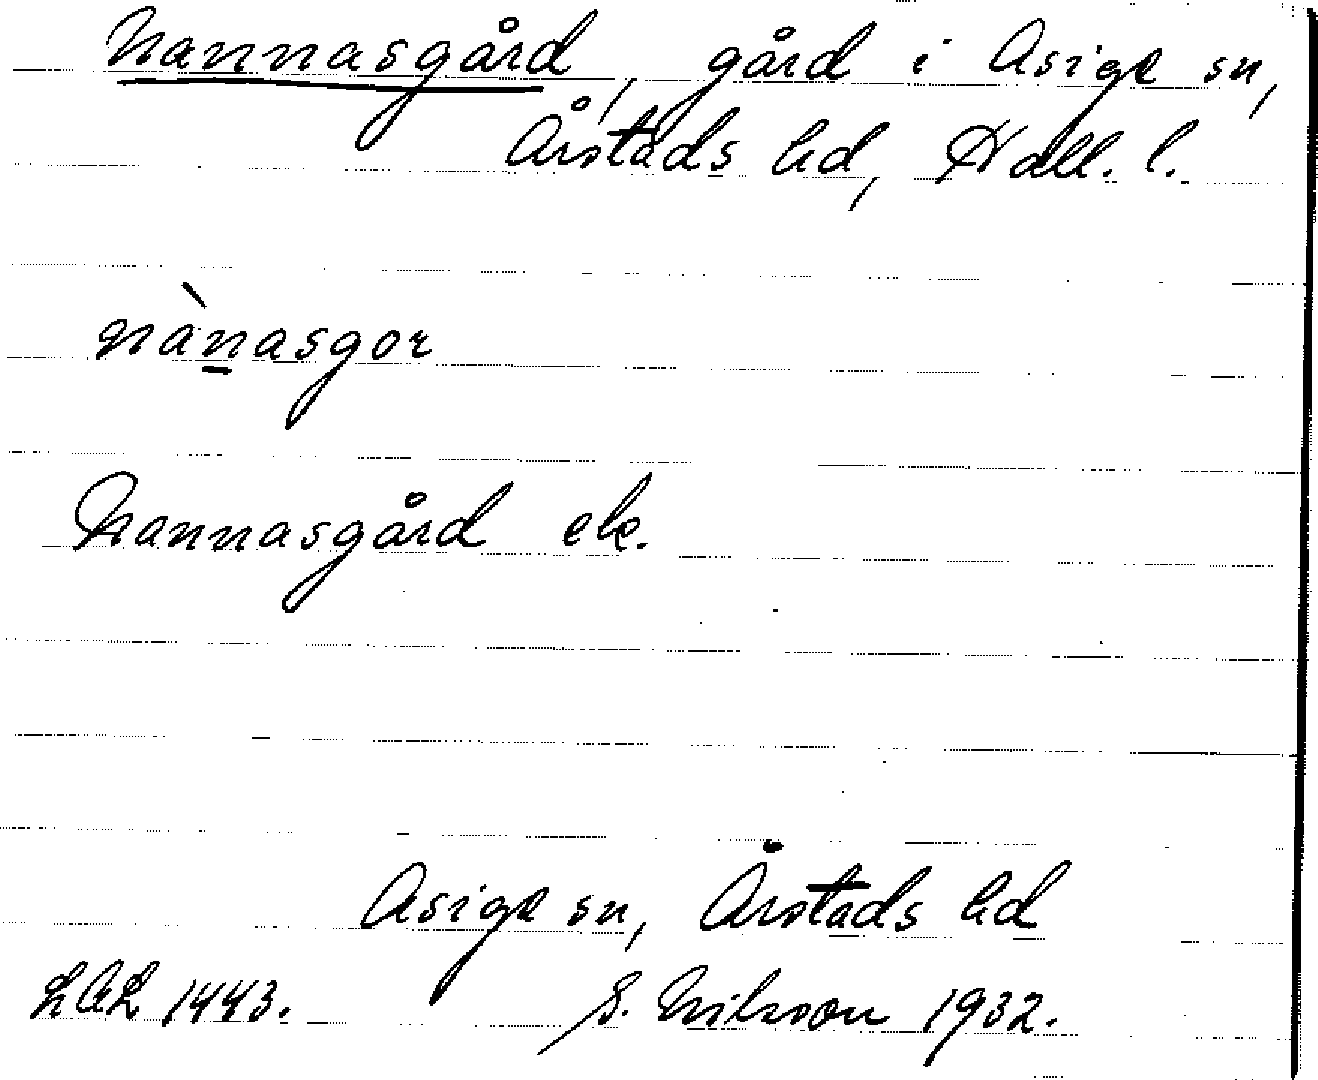 Nannasgård, gård i Asige sn,
Årstads hd, Hall. l.
nànasgor
Nannasgård ek.
Asige sn, Årstads hd
LAL 1443. S. Nilsson 1932.